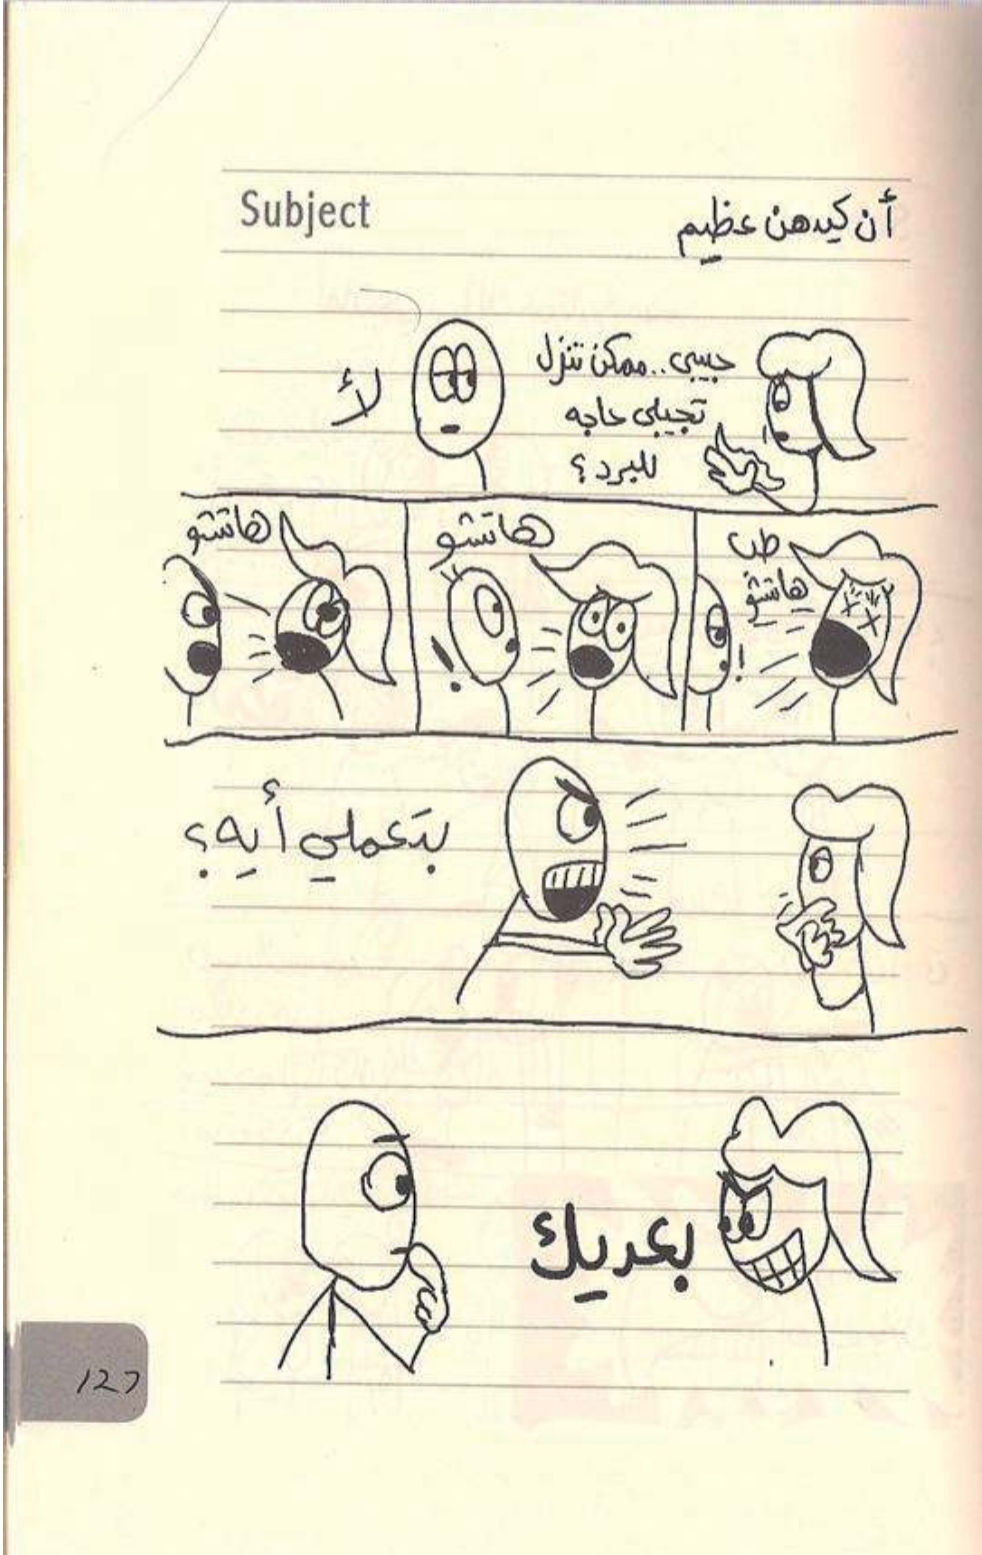 Subject
أن كيدهن عظيم
حبيبي..ممكن تنزل
تجيبلي حاجه
للبرد؟
لأ
طب
هاتشو
!
هاتشو
!
هاتشو
بتعملي أيه؟
بعديك
127